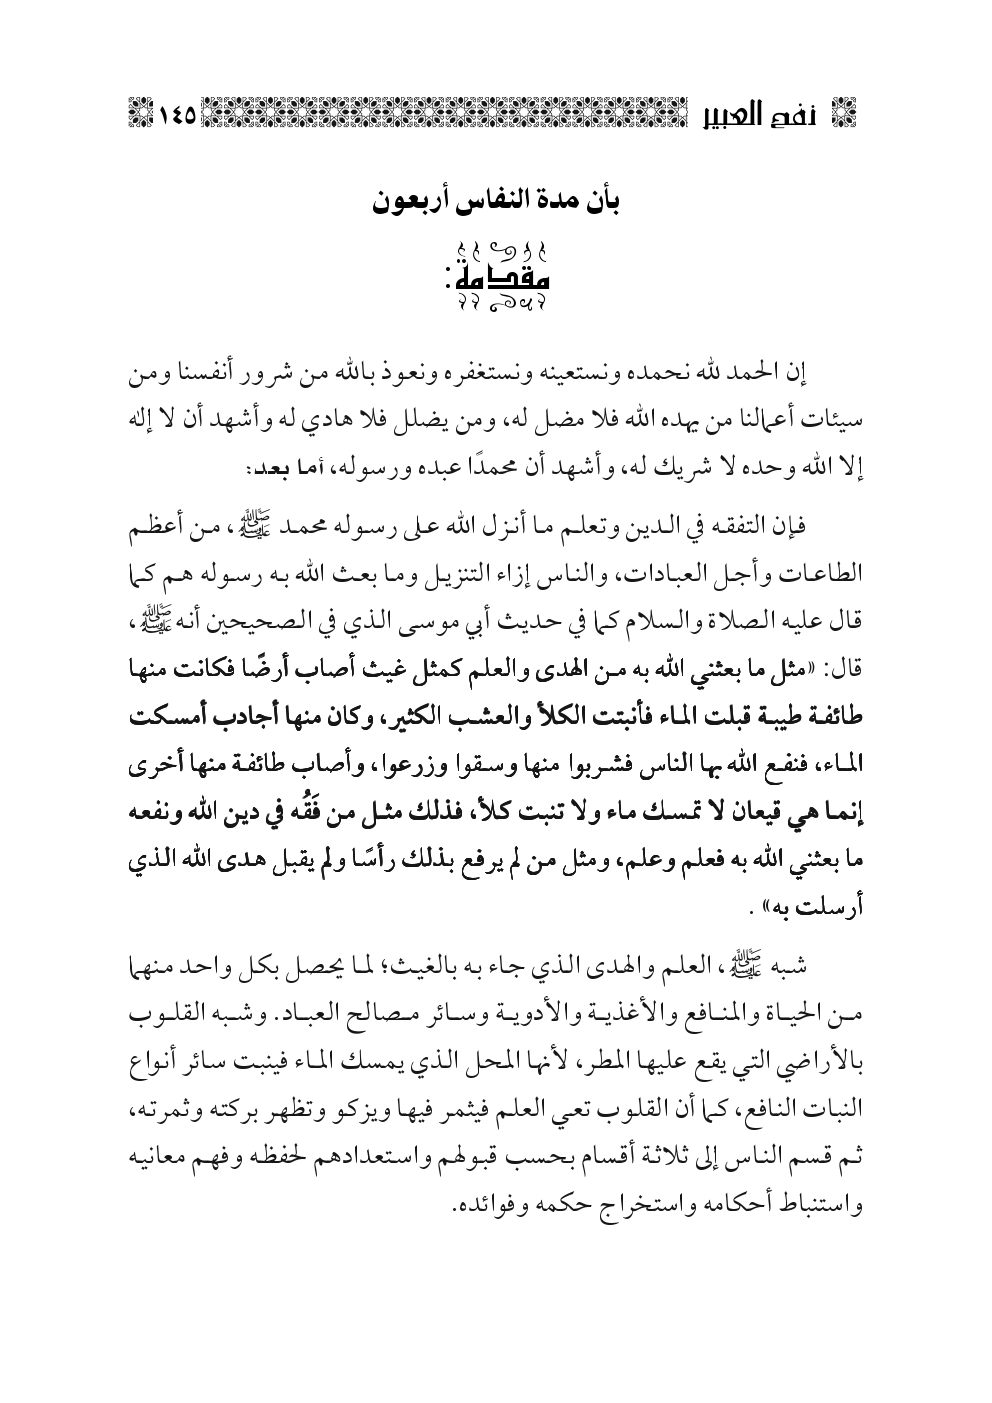 نفح العبير ١٤٥
بأن مدة النفاس أربعون
مقدمة:
إن الحمد لله نحمده ونستعينه ونستغفره ونعوذ بالله من شرور أنفسنا ومن
سيئات أعمالنا من يهده الله فلا مضل له، ومن يضلل فلا هادي له وأشهد أن لا إله
إلا الله وحده لا شريك له، وأشهد أن محمدًا عبده ورسوله، أما بعد:
فإن التفقه في الدين وتعلم ما أنزل الله على رسوله محمد ﷺ، من أعظم
الطاعات وأجل العبادات، والناس إزاء التنزيل وما بعث الله به رسوله هم كما
قال عليه الصلاة والسلام كما في حديث أبي موسى الذي في الصحيحين أنه ﷺ،
قال: «مثل ما بعثني الله به من الهدى والعلم كمثل غيث أصاب أرضًا فكانت منها
طائفة طيبة قبلت الماء فأنبتت الكلأ والعشب الكثير، وكان منها أجادب أمسكت
الماء، فنفع الله بها الناس فشربوا منها وسقوا وزرعوا، وأصاب طائفة منها أخرى
إنما هي قيعان لا تمسك ماء ولا تنبت كلأ، فذلك مثل من فَقُه في دين الله ونفعه
ما بعثني الله به فعلم وعلم، ومثل من لم يرفع بذلك رأسًا ولم يقبل هدى الله الذي
أرسلت به» .
شبه ﷺ، العلم والهدى الذي جاء به بالغيث؛ لما يحصل بكل واحد منهما
من الحياة والمنافع والأغذية والأدوية وسائر مصالح العباد. وشبه القلوب
بالأراضي التي يقع عليها المطر، لأنها المحل الذي يمسك الماء فينبت سائر أنواع
النبات النافع، كما أن القلوب تعي العلم فيثمر فيها ويزكو وتظهر بركته وثمرته،
ثم قسم الناس إلى ثلاثة أقسام بحسب قبولهم واستعدادهم لحفظه وفهم معانيه
واستنباط أحكامه واستخراج حكمه وفوائده.